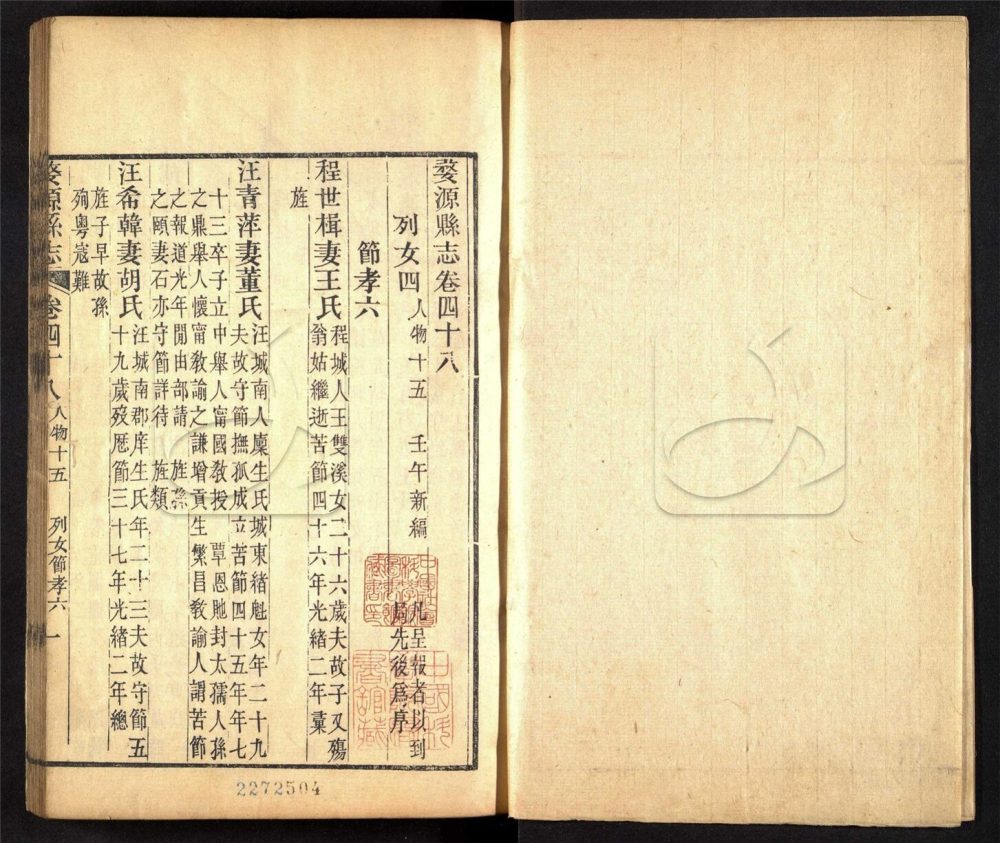 婺源縣志卷四十八
列女四 人物十五 壬午新編 凡呈報者以到
局先後爲序
節孝六
程世楫妻王氏 程城人王雙溪女二十六歲夫故子又殤
翁姑繼逝苦節四十六年光緒二年彙
旌
汪青萍妻董氏 汪城南人廩生氏城東緒魁女年二十九
夫故守節撫孤成立苦節四十五年年七
十三卒子立中舉人甯國敎授 覃恩貤封太孺人孫
之鼎舉人懷甯敎諭之謙增貢生繁昌敎諭人謂苦節
之報道光年閒由部請 旌孫
之頤妻石亦守節詳待 旌類
汪希韓妻胡氏 汪城南郡庠生氏年二十三夫故守節五
十九歲歿厯節三十七年光緒二年總
旌子早故孫
殉粵寇難
婺源縣志 卷四十八 人物十五 列女節孝六 一
2272504